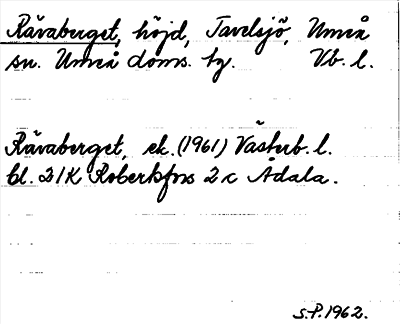 Rävaberget, höjd, Tavelsjö, Umeå
sn. Umeå doms. hg. Vb. l.
Rävaberget, ek. (1961) Västerb. l.
bl. 21K Robertsfors 2c Ådala.
S.P. 1962.